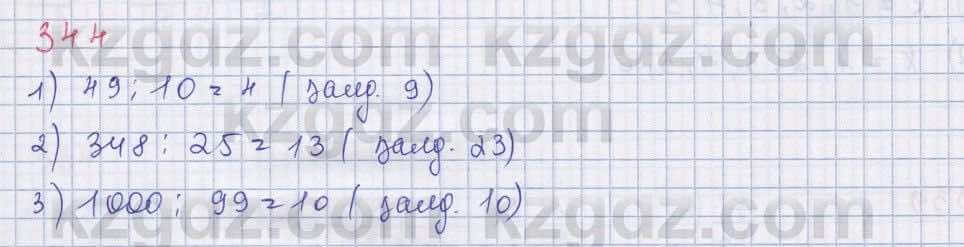 344
1) 49 : 10 = 4 ( залд. 9)
2) 348 : 25 = 13 ( залд. 23)
3) 1000 : 99 = 10 ( залд. 10)
kzgdz.com kzgdz.com
kzgdz.com
kzgdz.com kzgdz.com